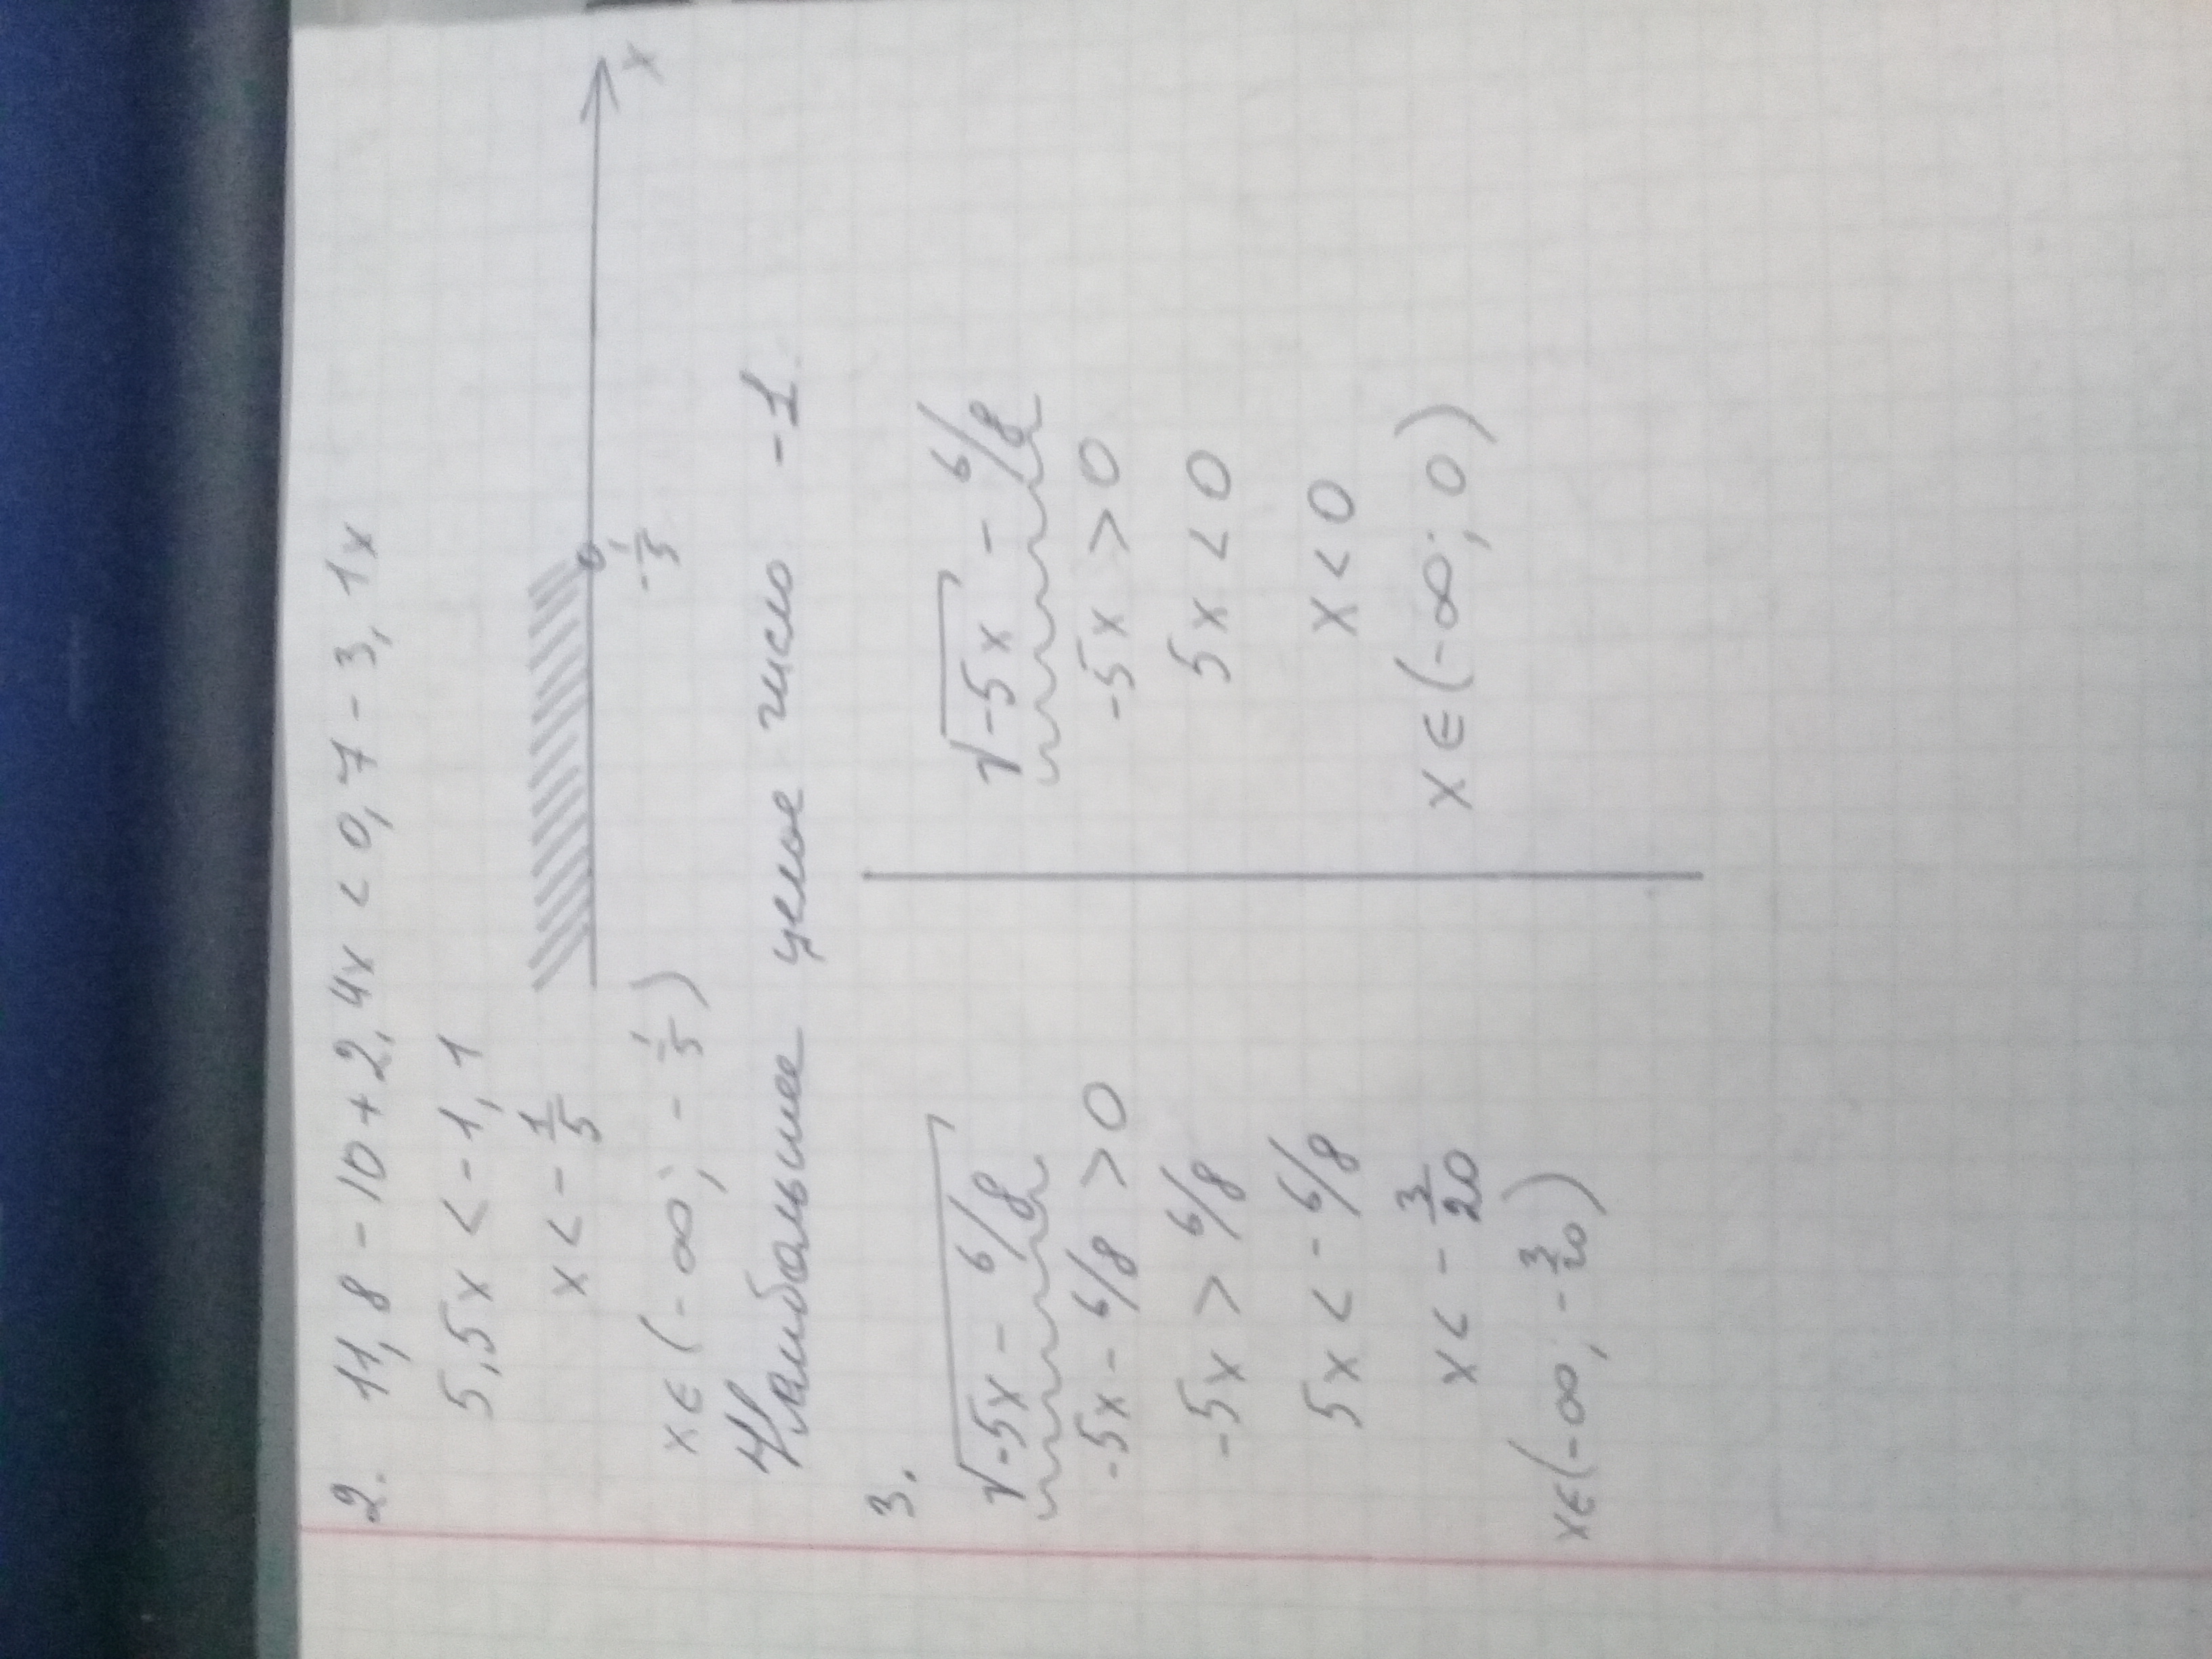 2. 11,8 - 10 + 2,4x < 0,7 - 3,1x
5,5x < -1,1
x < - 1/5
x
- 1/5
x ∈ (-∞; - 1/5)
Наибольшее целое число -1.
3.
√-5x - 6/8
-5x - 6/8 > 0
-5x > 6/8
5x < - 6/8
x < - 3/20
x ∈ (-∞; - 3/20)
√-5x - 6/8
-5x > 0
5x < 0
x < 0
x ∈ (-∞; 0)